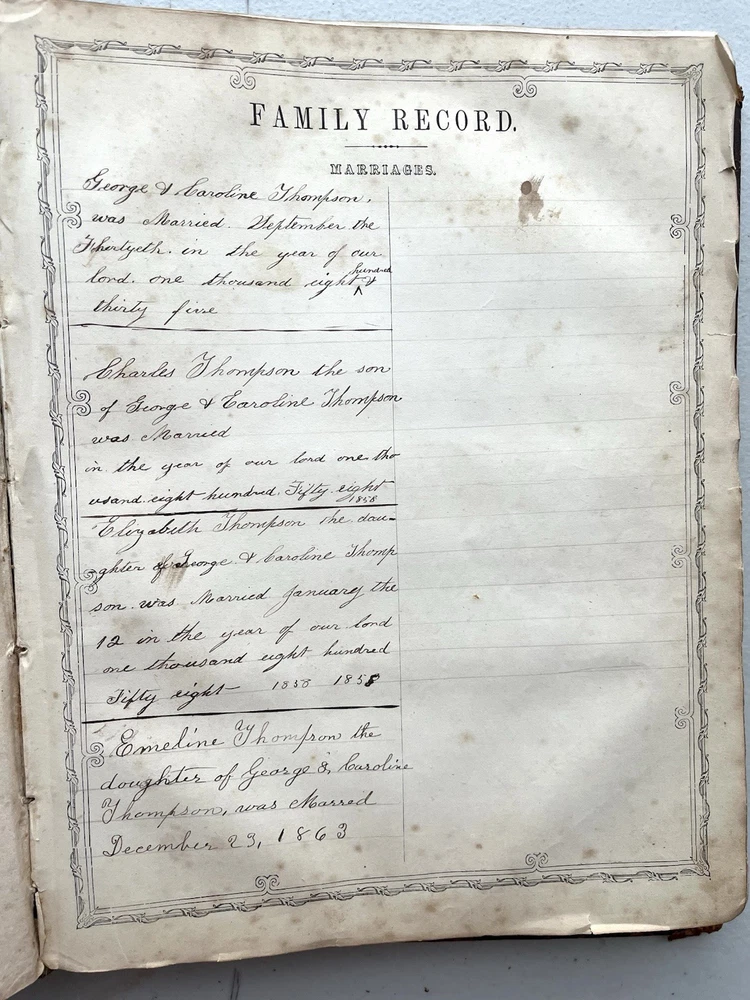 FAMILY RECORD.
MARRIAGES.
George & Caroline Thompson,
was Married. September the
Thirtyeth. in the year of our
lord. one thousand eight hundred &
thirty five
Charles Thompson the son
of George & Caroline Thompson
was Married
in the year of our lord one tho
usand. eight hundred. Fifty. eight
1858
Elizabeth Thompson the dau-
ghter of George. & Caroline Thomp
son. was. Married January the
12 in the year of our lord
one thousand eight hundred
Fifty eight 1858 1858
Emeline Thompson the
doughter of George &, Caroline
Thompson, was Marred
December 23, 1863